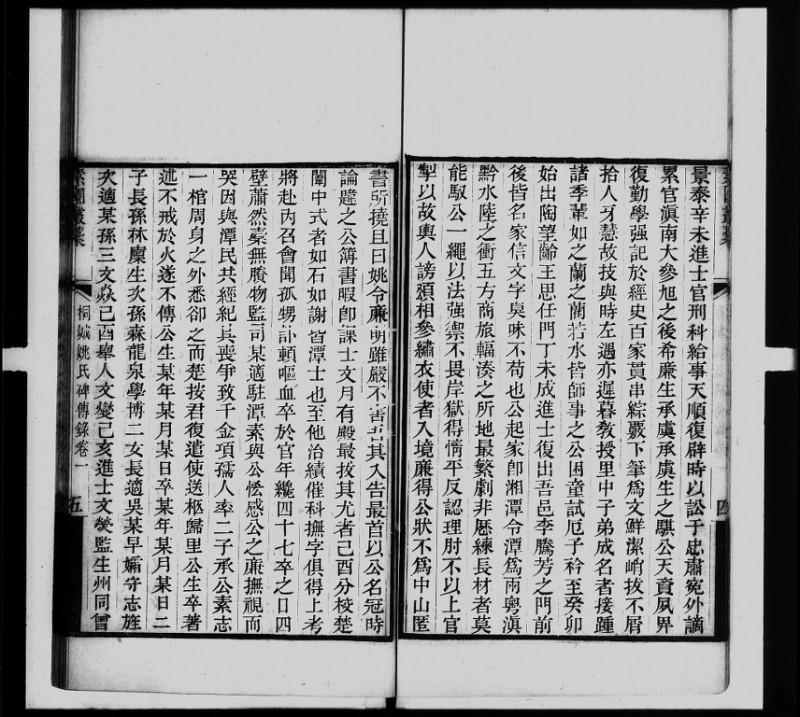 景泰辛未進士官刑科給事天順復辟時以訟于忠肅寃外謫
累官滇南大參旭之後希廉生承虞承虞生之騏公天資夙畀
復勤學强記於經史百家貫串綜覈下筆爲文鮮潔峭拔不屑
拾人牙慧故技與時左遇亦遲暮敎授里中子弟成名者接踵
諸季輩如之蘭之蘭若水皆師事之公困童試厄子衿至癸卯
始出陶望齡王思任門丁未成進士復出吾邑李騰芳之門前
後皆名家信文字臭味不苟也公起家卽湘潭令潭爲兩粵滇
黔水陸之衝五方商旅輻湊之所地最繁劇非歷練長材者莫
能馭公一繩以法强禦不畏岸獄得情平反認理肘不以上官
掣以故與人謗頌相參繡衣使者入境廉得公狀不爲中山匿
書所撓且曰姚令廉明雖嚴不害吾其入告最首以公名冠時
論韙之公簿書暇卽課士文月有殿最拔其尤者己酉分校楚
闈中式者如石如謝皆潭士也至他治績催科撫字俱得上考
將赴內召會聞孤甥訃頓嘔血卒於官年纔四十七卒之日四
壁蕭然橐無賸物監司某適駐潭素與公恠感公之廉撫視而
哭因與潭民共經紀其喪爭致千金項孺人率二子承公素志
一棺周身之外悉卻之而楚按君復遣使送柩歸里公生卒著
述不戒於火遂不傳公生某年某月日卒某年某月某日二
子長孫林廩生次孫森龍泉學博二女長適吳某早孀守志旌
次適某孫三文焱己酉舉人文燮己亥進士文燓監生州同曾
桐城姚氏碑傳錄卷一
五